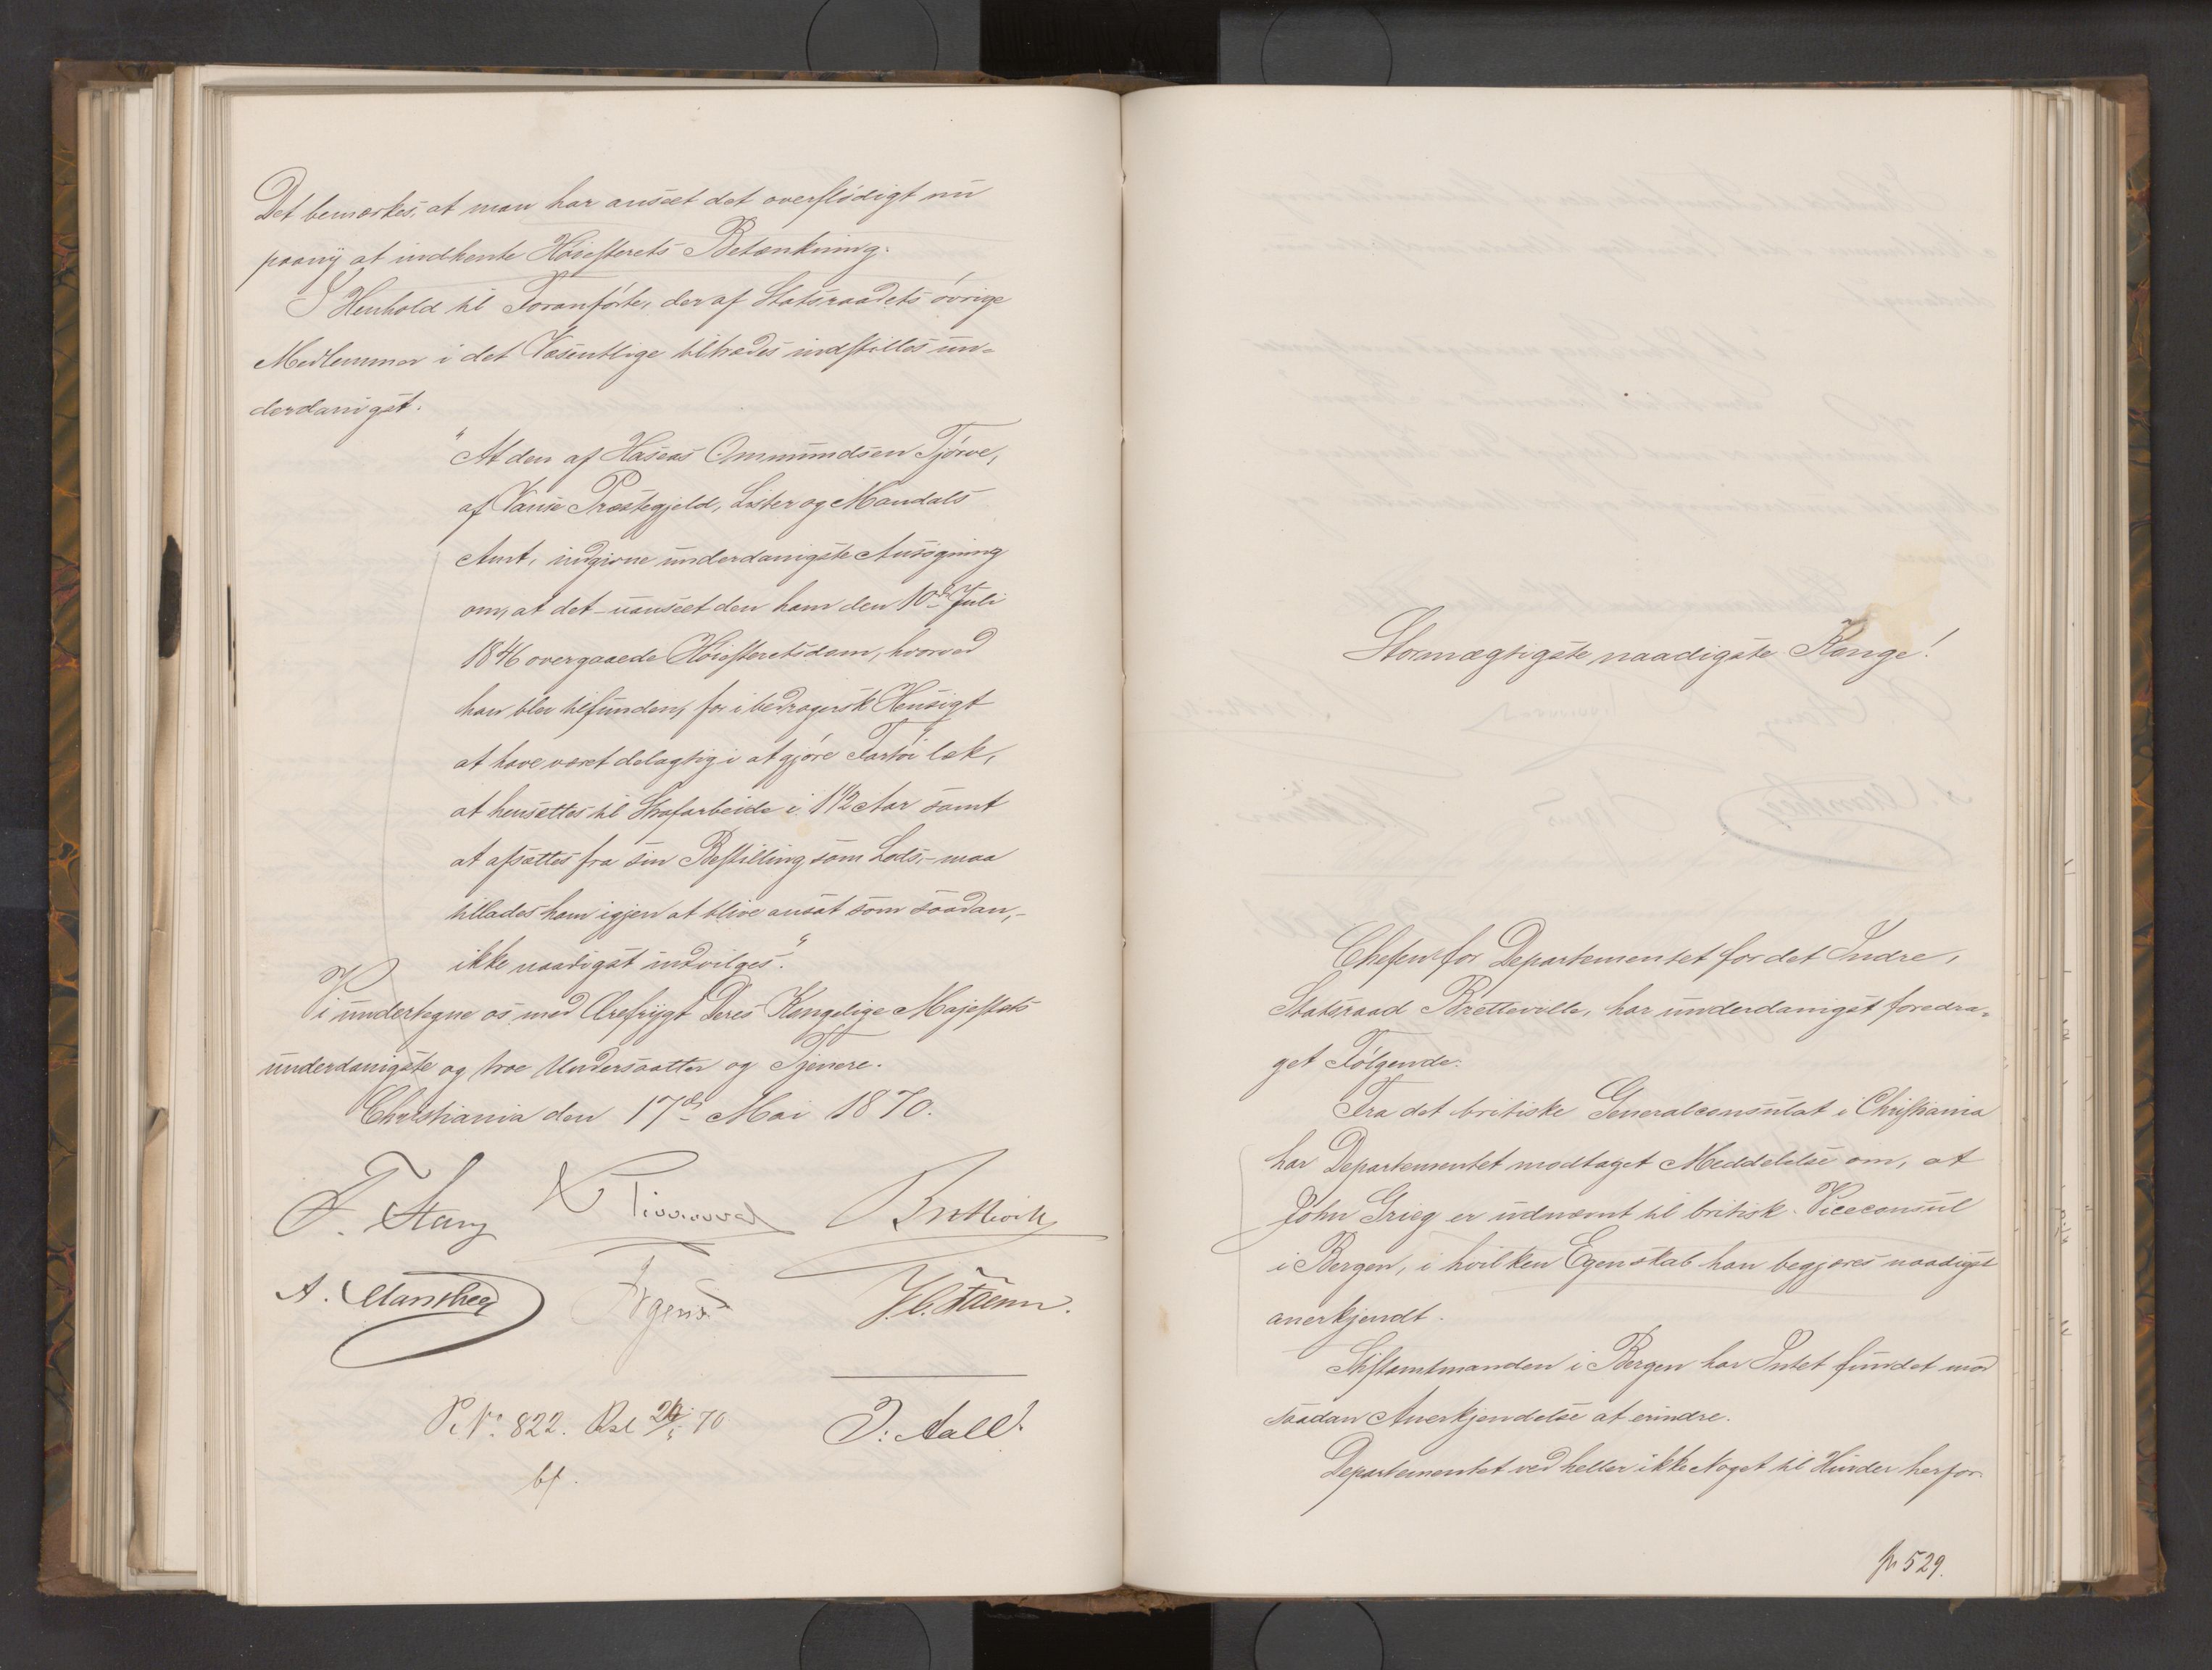 Det bemærkes, at man har anseet det overflødigt nu
paany at indhente Høiesterets Betænkning.
I Henhold til Foranførte, der af Statsraadets øvrige
Medlemmer i det Væsentlige tiltrædes indstilles un-
derdanigst:
"At den af Haseas Ommundsen Tjørve,
af Vanse Præstegjeld, Lister og Mandals
Amt, indgivne underdanigste Ansøgning
om, at det – uanseet den ham den 10de Juli
1846 overgaaede Høiesteretsdom, hvorved
han blev tilfunden, for i bedragersk Hensigt
at have været delagtig i at gjøre Fartøi læk,
at hensættes til Strafarbeide i 1 1/2 Aar samt
at afsættes fra sin Bestilling som Lods, – maa
tillades ham igjen at blive ansat som saadan, –
ikke naadigst indvilges."
Vi undertegne os med Ærefrygt Deres Kongelige Majestæts
underdanigste og troe Undersaatter og Tjenere.
Christiania den 17de Mai 1870.
F. Stang Bretteville
A. Manthey Irgens J. C. Falsen.
P. No. 822. Rsl 70
bf.
J: Aall.
Stormægtigste naadigste Konge!
Chefen for Departementet for det Indre,
Statsraad Bretteville, har underdanigst foredra-
get Følgende:
Fra det britiske Generalconsulat i Christiania
har Departementet modtaget Meddelelse om, at
John Grieg er udnævnt til britisk Viceconsul
i Bergen, i hvilken Egenskab han begjæres naadigst
anerkjendt.
Stiftamtmanden i Bergen har Intet fundet mod
saadan Anerkjendelse at erindre.
Departementet ved heller ikke Noget til Hinder herfor.
529.